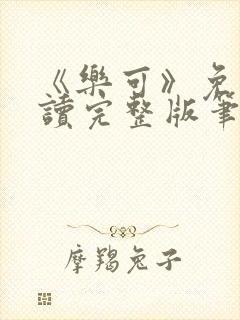 《樂可》兔
讀完整版筆
摩羯兔子